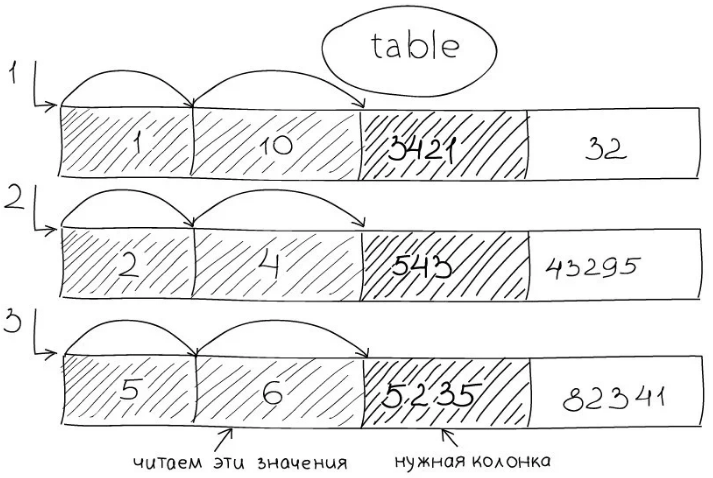 table
1
1 10 3421 32
2
2 4 543 43295
3
5 6 5235 82341
читаем эти значения нужная колонка